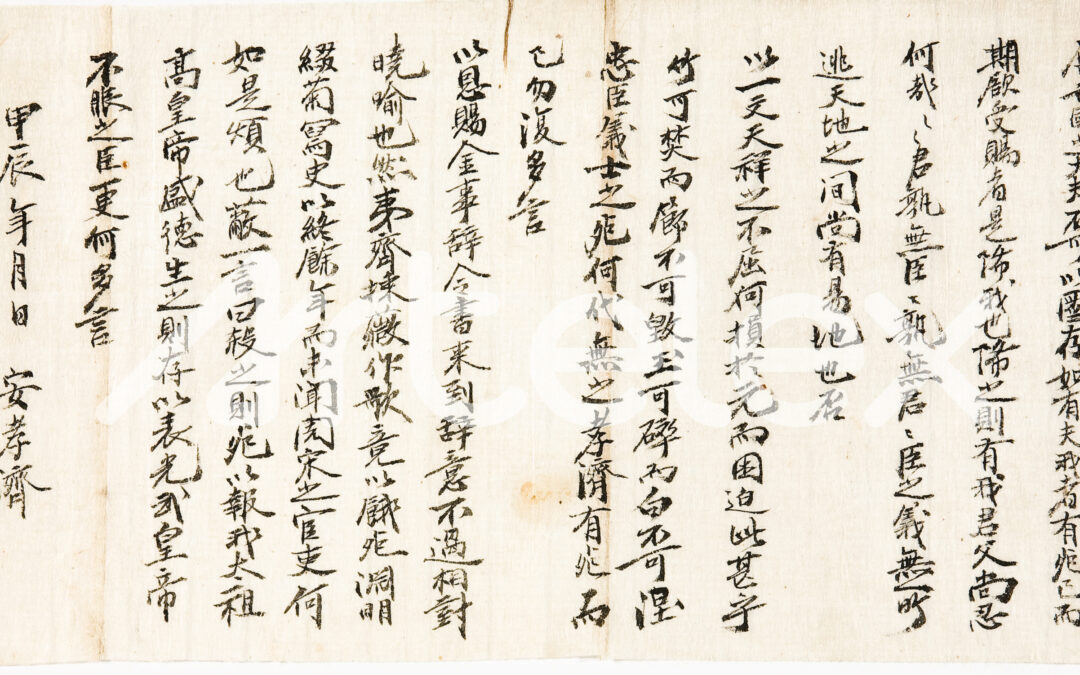 以區存如有夫我者有死已而
期欲受賜者是降我也降之則有我君父尚忍
何哉〻君孰無臣〻孰無君〻臣之義無所
逃天地之間尚有易地也否
以一文天祥之不屈何損於元而困迫此甚乎
竹可焚而節不可毀玉可碎而白不可湼
忠臣義士之死何代無之孝濟有死而
已勿復多言
以恩賜金事辭令書来到辭意不過相對
曉喻也然夷齊採薇作歌竟以餓死淵明
綴菊寫史以終餘年而未聞周宋之官吏何
如是煩也蔽一言曰殺之則死以報我太祖
高皇帝盛德生之則存以表光武皇帝
不服之臣更何多言
甲辰年月日 安孝濟
Artelex